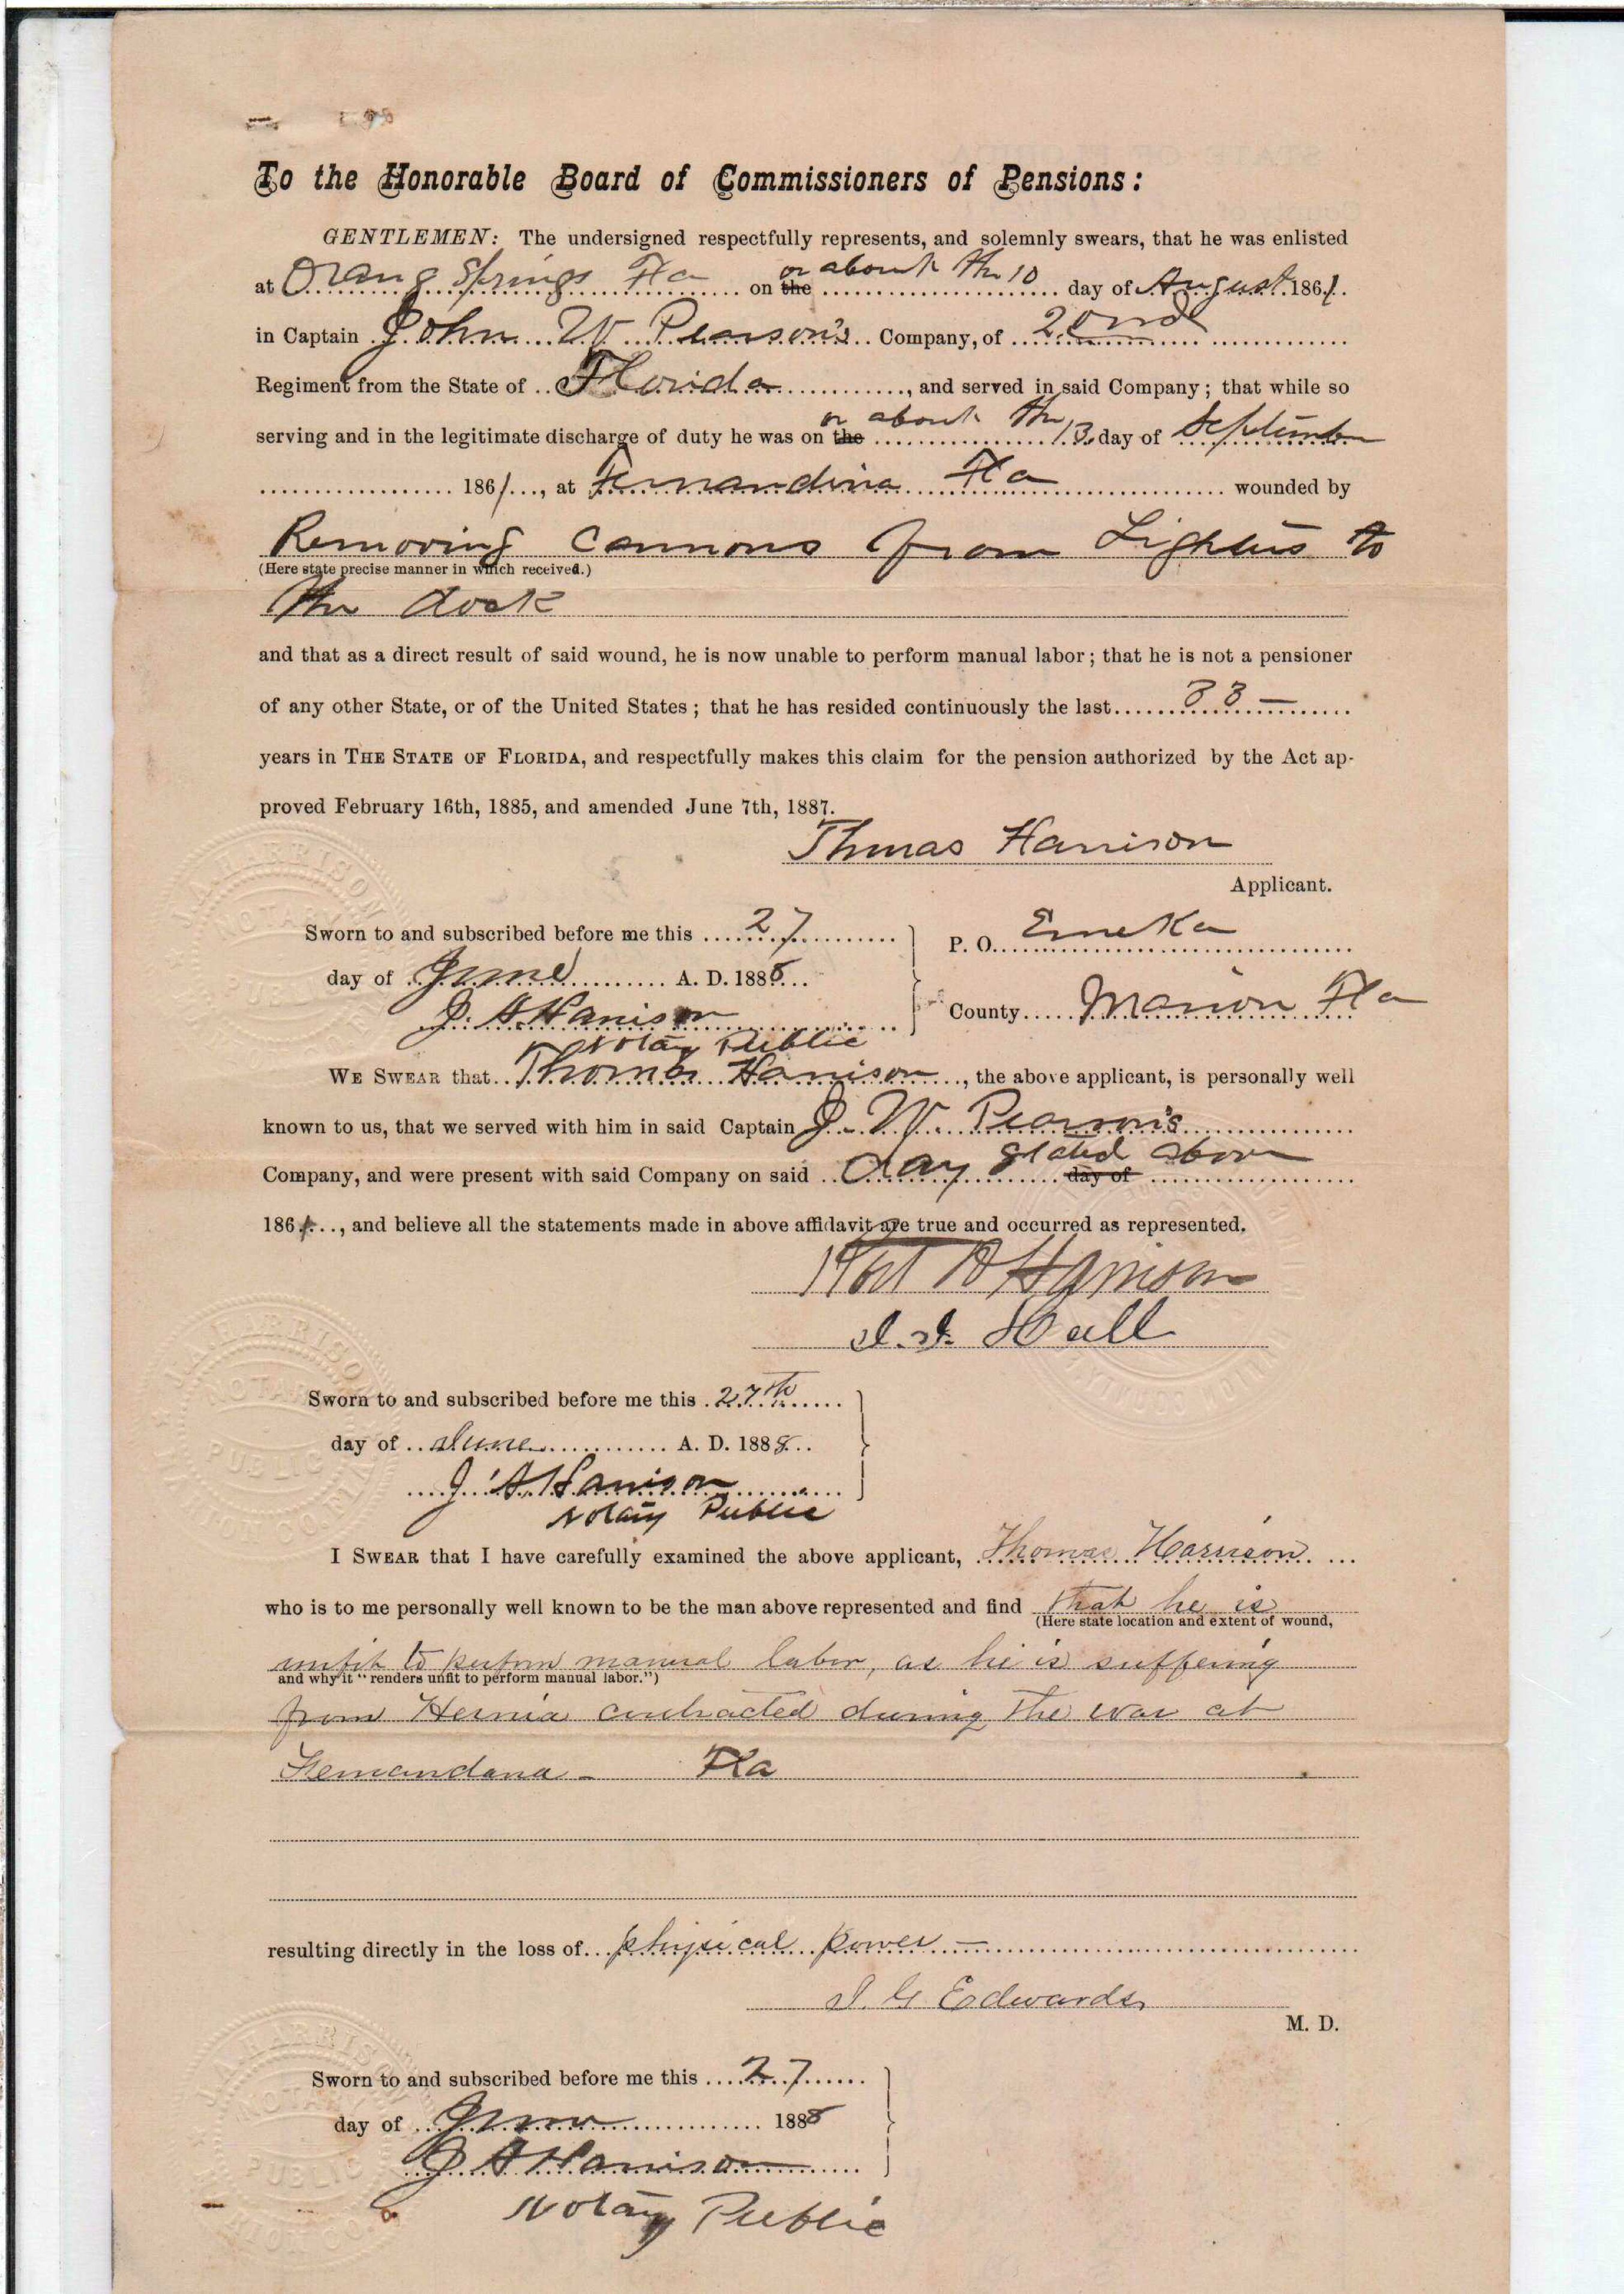 To the Honorable Board of Commissioners of Pensions:
GENTLEMEN: The undersigned respectfully represents, and solemnly swears, that he was enlisted
or about the 10
at Orang Springs Fla on the day of August 1861.
in Captain John W Pearson's Company, of 2ond
Regiment from the State of Florida, and served in said Company; that while so
or about the
serving and in the legitimate discharge of duty he was on the 13 day of September
1861, at Fernandina Fla wounded by
Removing Cannons from Lighters to
(Here state precise manner in which received.)
the dock
and that as a direct result of said wound, he is now unable to perform manual labor; that he is not a pensioner
of any other State, or of the United States; that he has resided continuously the last 33 —
years in THE STATE OF FLORIDA, and respectfully makes this claim for the pension authorized by the Act ap-
proved February 16th, 1885, and amended June 7th, 1887.
Thmas Harrison
Applicant.
Sworn to and subscribed before me this 27
P. O. Emeka
day of June A. D. 1888
County Marion Fla
J. A Harrison
Notary Public
WE SWEAR that Thomas Harrison, the above applicant, is personally well
known to us, that we served with him in said Captain J. W. Pearson's
Company, and were present with said Company on said day stated above day of
1861, and believe all the statements made in above affidavit are true and occurred as represented.
Harrison
Hall
Sworn to and subscribed before me this 27th
day of June A. D. 1888
J. A Harrison
Notary Public
I SWEAR that I have carefully examined the above applicant, Thomas Harrison
who is to me personally well known to be the man above represented and find that he is
(Here state location and extent of wound,
unfit to perform manual labor, as he is suffering
and why it "renders unfit to perform manual labor.")
from Hernia contracted during the war at
Fernandana - Fla
resulting directly in the loss of physical power —
J. G Edwards
M. D.
Sworn to and subscribed before me this 27
day of June 1888
J A Harrison
Notary Public
J. A. HARRISON
NOTARY
PUBLIC
MARION CO. FLA.